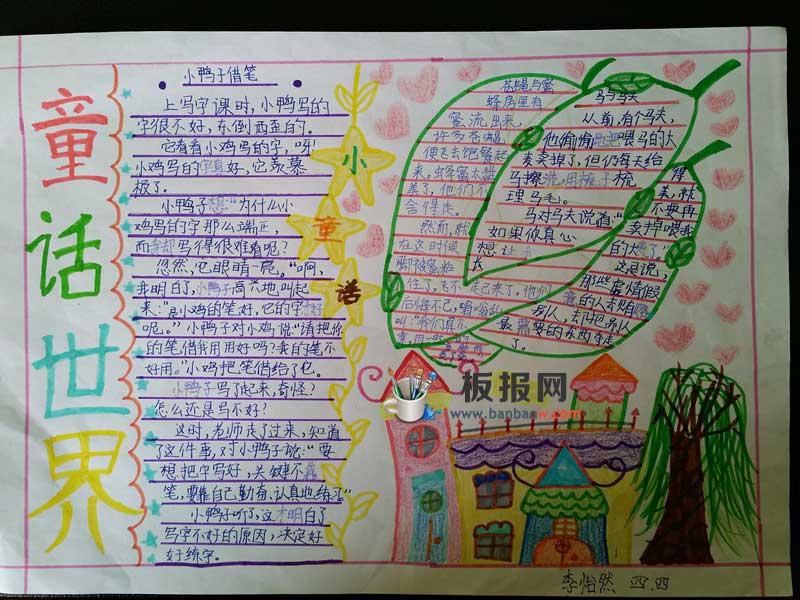 童话世界
小鸭子借笔
上写字课时,小鸭写的
字很不好,东倒西歪的。
它看看小鸡写的字,呀!
小鸡写的字真好,它羡慕
极了。
小鸭子想:"为什么小
鸡写的字那么端正,
而我却写得很难看呢?
忽然,它眼睛一亮。"啊,
我明白了,小鸭子高兴地叫起
来:"是小鸡的笔好,它的字才好
呢。"小鸭子对小鸡说:"请把你
的笔借我用用好吗?我的笔不
好用。"小鸡把笔借给了它。
小鸭子写了起来,奇怪?
怎么还是写不好?
这时,老师走了过来,知道
了这件事,对小鸭子说:"要
想把字写好,关键不靠
笔,要靠自己勤奋、认真地练习"
小鸭子听了,这才明白了
写字不好的原因,决定好
好练字。
小童话
苍蝇与蜜
蜂房里有
蜜流出来,
许多苍蝇
便飞去饱餐起
来。蜂蜜太甜
美了,他们不
舍得走。
然而,就
在这时候
脚被蜜粘
住了,飞不起来了。他们
后悔不已,嗡嗡乱
叫:"我们真不
马与马夫
从前,有个马夫,
他偷偷地把喂马的大
麦卖掉了,但仍每天给
马擦洗,用梳子梳
理马毛。
马对马夫说道:"
如果你真心
想让我
得
美,就
不要再
卖掉喂我
的大麦了"
这是说,
那些虚情假
意的人去帮助
别人,却把别人
最需要的东西夺走
了。
板报网
www.banbanw.com
李怡然 四.四